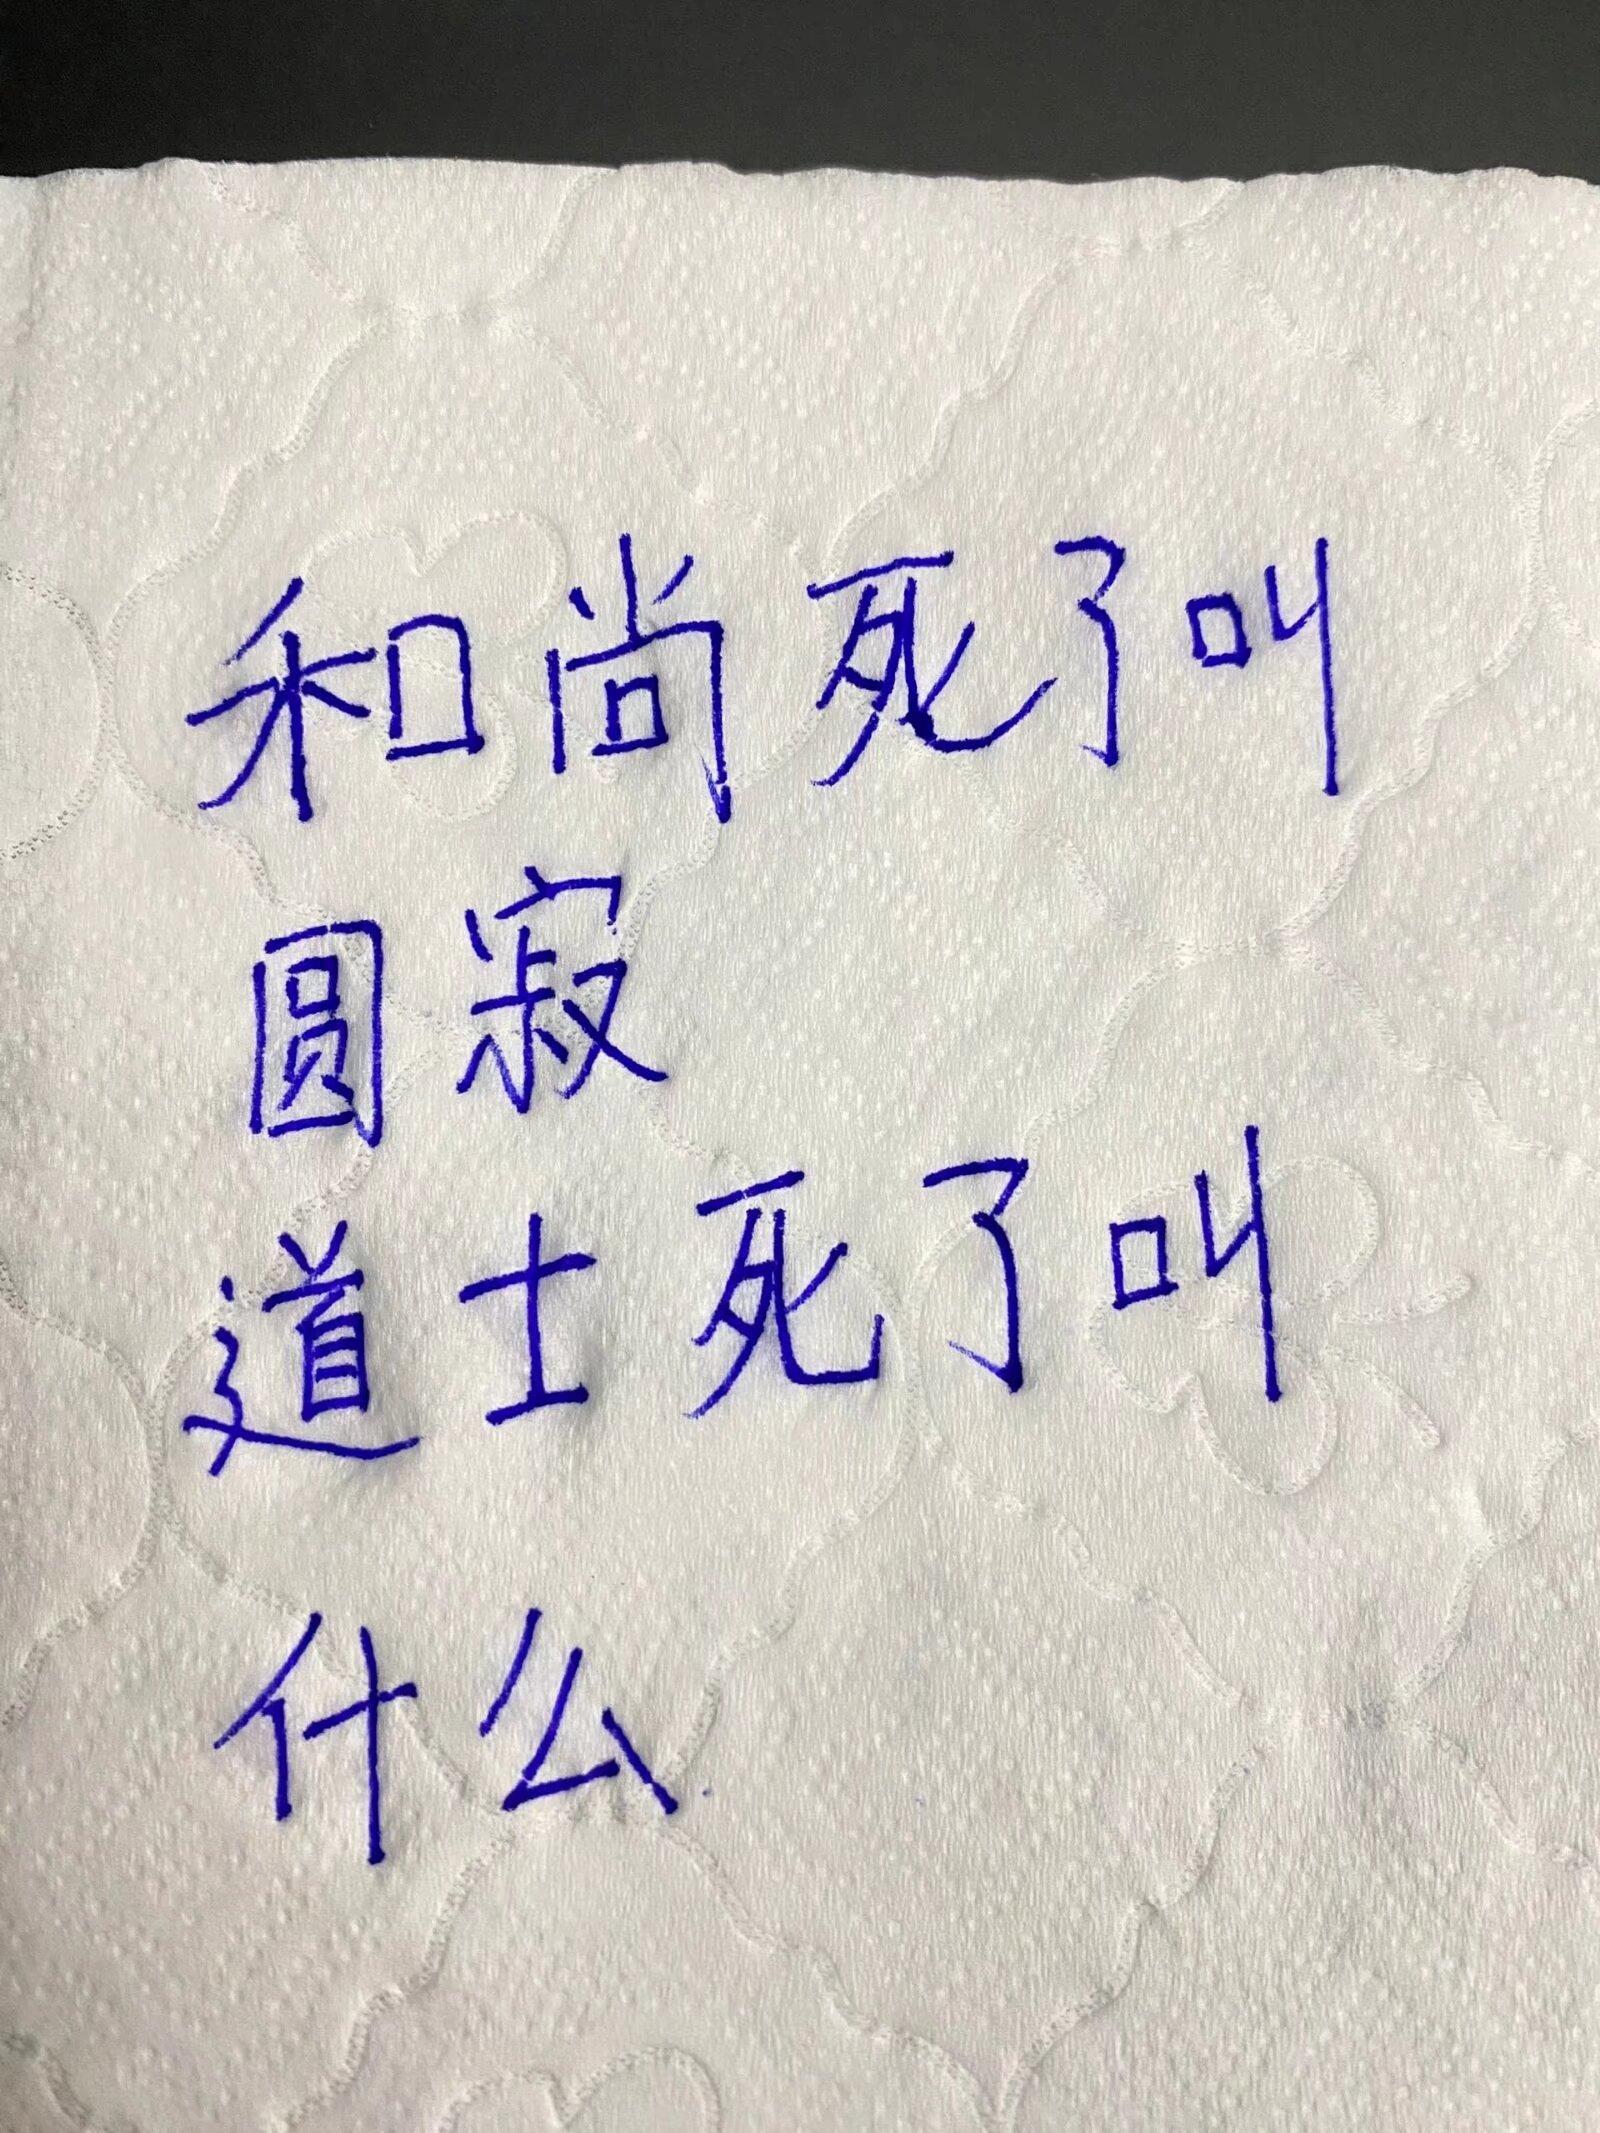 和尚死了叫
圆寂
道士死了叫
什么